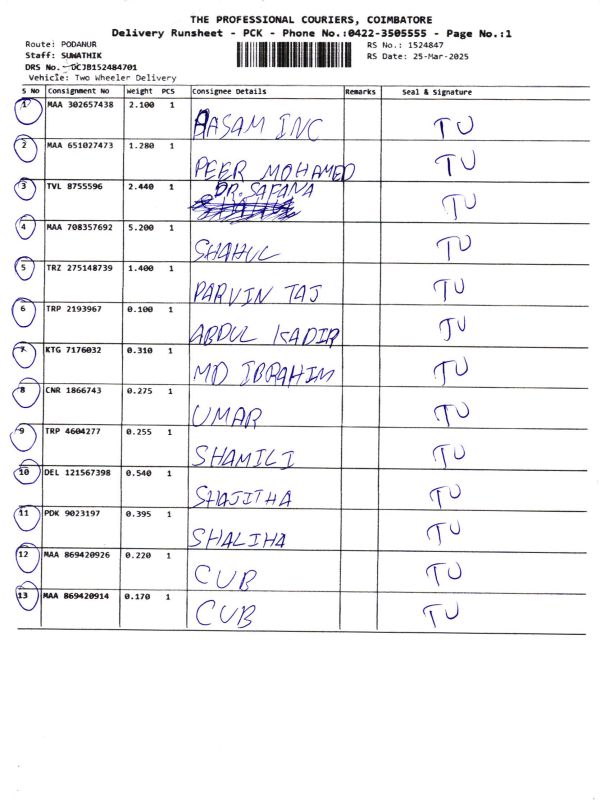 THE PROFESSIONAL COURIERS, COIMBATORE
Delivery Runsheet - PCK - Phone No.:0422-3505555 - Page No.:1
Route: PODANUR RS No.: 1524847
Staff: SUWATHIK RS Date: 25-Mar-2025
DRS No. DCJB152484701
Vehicle: Two Wheeler Delivery
S No Consignment No Weight PCS Consignee Details Remarks Seal & Signature
1 MAA 302657438 2.100 1 HASAM INC TU
2 MAA 651027473 1.280 1 PEER MOHAMED TU
3 TVL 8755596 2.440 1 DR. SAFANA TU
4 MAA 708357692 5.200 1 SHAHUL TU
5 TRZ 275148739 1.400 1 PARVIN TAJ TU
6 TRP 2193967 0.100 1 ABDUL KADIR TU
7 KTG 7176032 0.310 1 MD IBRAHIM TU
8 CNR 1866743 0.275 1 UMAR TU
9 TRP 4604277 0.255 1 SHAMILI TU
10 DEL 121567398 0.540 1 SHAJITHA TU
11 PDK 9023197 0.395 1 SHALIHA TU
12 MAA 869420926 0.220 1 CUB TU
13 MAA 869420914 0.170 1 CUB TU